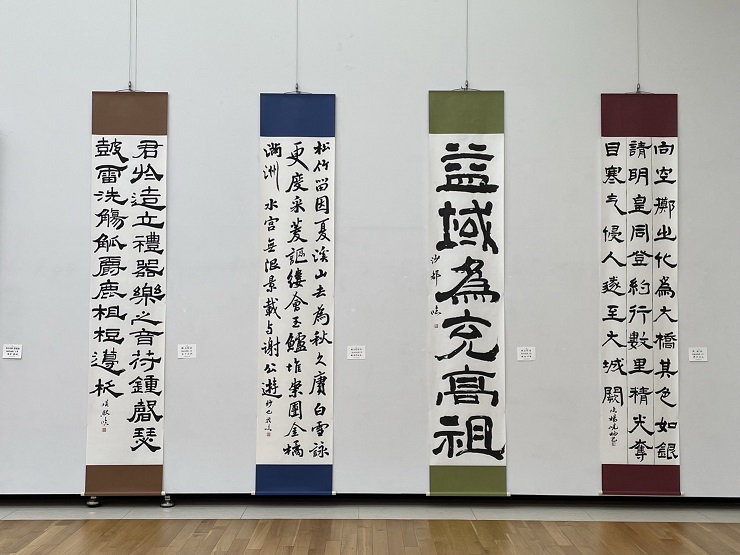 君於造立禮器樂之音符鍾磬瑟
鼓雷洗觴觚爵鹿柤梪籩柉
松竹留因夏溪山去為秋久賡白雪詠
更度采菱謳縷會玉鱸堆案團金橘
滿洲水宮無限景載与謝公遊
益域為充高祖
沙邨臨
向空擲出化為大橋其色如銀
請明皇同登約行數里精光奪
目寒气侵人遂至大城闕